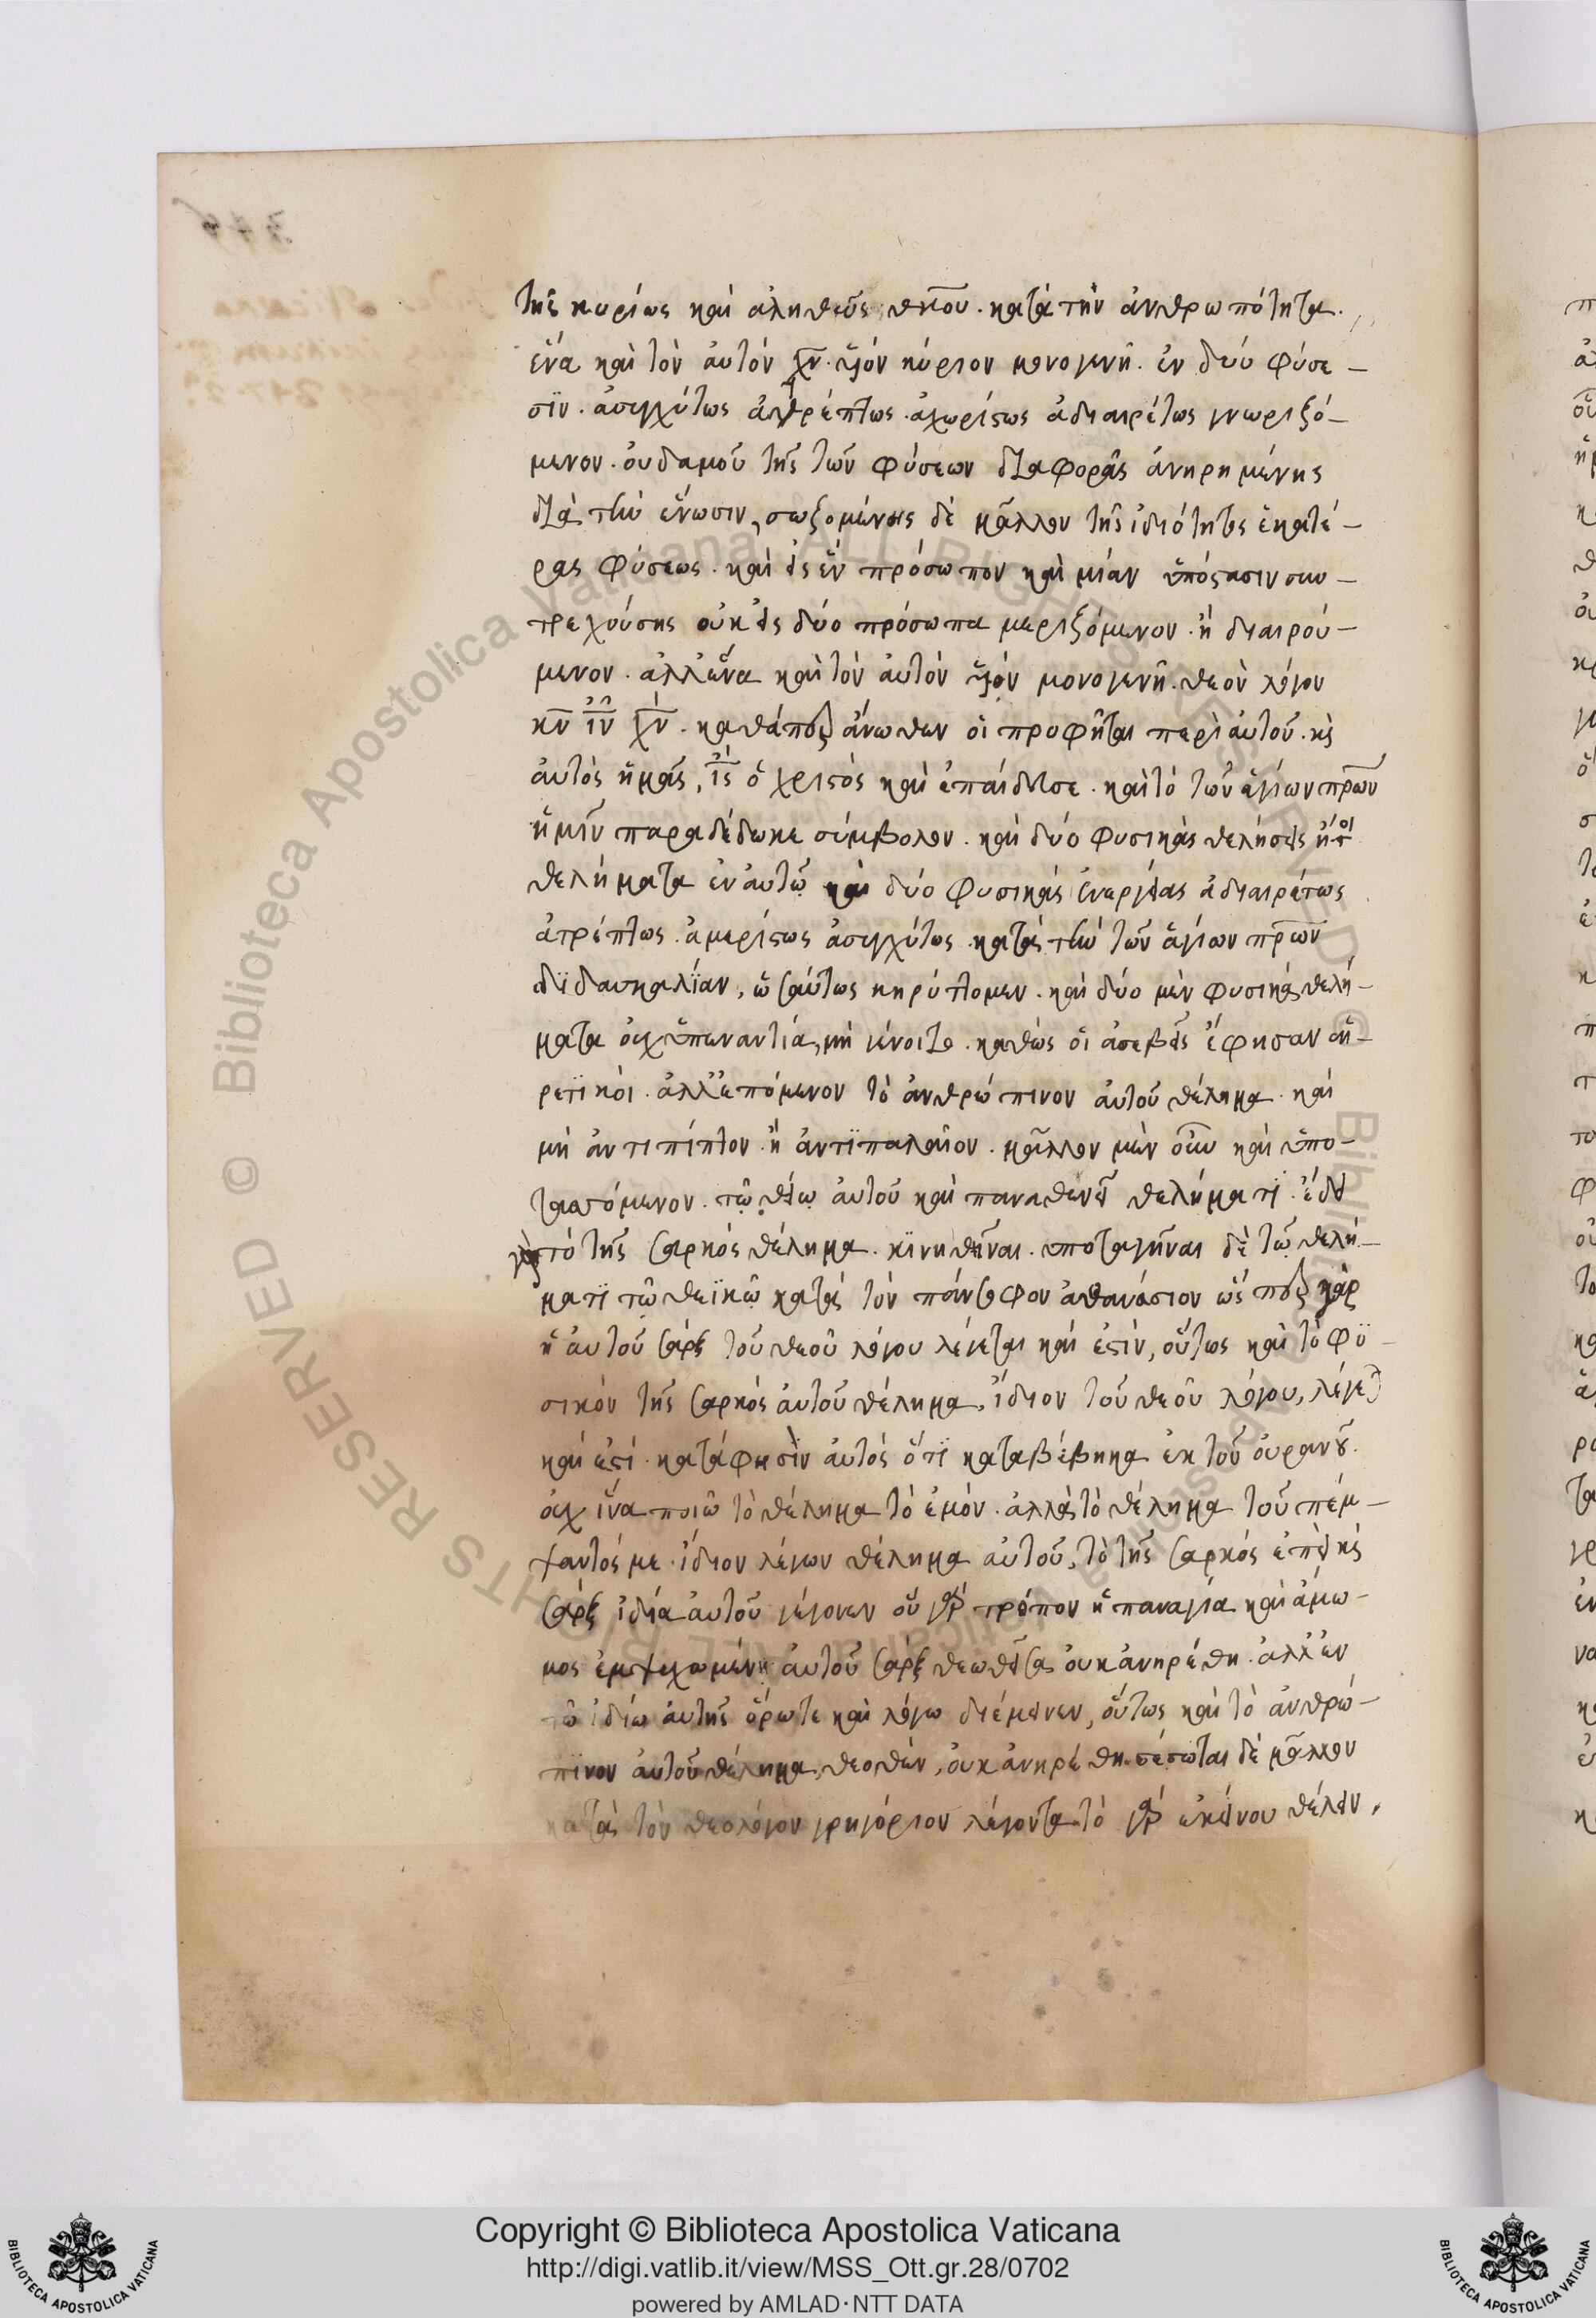 τῆς κυρίως καὶ ἀληθῶς θκ̅ου. κατὰ τὴν ἀνθρωπότητα.
ἕνα καὶ τὸν αὐτόν χν̅. υἱόν κύριον μονογενῆ. ἐν δυό φύσε-
σϊν. ἀσυγχύτως ἀτρέπτως. ἀχωρίστως ἀδιαιρέτως γνωριζό-
μενον. οὐδαμοῦ τῆς τῶν φύσεων διαφορᾶς ἀνηρημένης
διὰ τὴν ἕνωσιν, σωζομένης δὲ μᾶλλον τῆς ἰδιότητος ἑκατέ-
ρας φύσεως. καὶ εἰς ἓν πρόσωπον καὶ μίαν ὑπόστασιν συν-
τρεχούσης οὐκ εἰς δύο πρόσωπα μεριζόμενον. ἢ διαιρού-
μενον. ἀλλἕνα καὶ τὸν αὐτόν υἱόν μονογενῆ. θεὸν λόγον
κν̅ ιν̅ χν̅. καθάπερ ἄνωθεν οἱ προφῆται περὶ αὐτοῦ. κὶ
αὐτὸς ἡμᾶς, ις̅ ὁ χριστὸς καὶ ἐπαίδευσε. καὶ τὸ τῶν ἁγίων πρ̅ων
ἡμῖν παραδέδωκε σύμβολον. καὶ δύο φυσικὰς θελήσεις ἤτοι
θελήματα ἐν αὐτῷ καὶ δύο φυσικὰς ἐνεργείας ἀδιαιρέτως
ἀτρέπτως. ἀμερίστως ἀσυγχύτως. κατὰ τὴν τῶν ἁγίων πρ̅ων
δϊδασκαλίαν, ὡσαύτως κηρύττομεν. καὶ δύο μὲν φυσικὰ θελή-
ματα οὐχ ὑπεναντία, μὴ γένοιτο. καθὼς οἱ ἀσεβεῖς ἔφησαν αἱ-
ρετϊκοὶ. ἀλλ' ἑπόμενον τὸ ἀνθρώπινον αὐτοῦ θέλημα. καὶ
μὴ ἀντιπίπτον. ἢ ἀντϊπαλαῖον. μᾶλλον μὲν οὖν καὶ ὑπο-
τασσόμενον. τῷ θείῳ αὐτοῦ καὶ πανσθενεῖ θελήματϊ. ἔδει
γὰρ τὸ τῆς σαρκός θέλημα. κϊνηθῆναι. ὑποταγῆναι δὲ τῷ θελή-
ματϊ τῷ θεϊκῷ κατὰ τὸν πάνσοφον ἀθανάσιον ὥς περ γὰρ
ἡ αὐτοῦ σάρξ τοῦ θεοῦ λόγου λέγεται καὶ ἐστὶν, οὕτως καὶ τὸ φϋ-
σικόν τῆς σαρκός αὐτοῦ θέλημα, ἴδιον τοῦ θεοῦ λόγου, λέγεται
καὶ ἐστὶ. κατά φησὶν αὐτός ὅτϊ καταβέβηκα ἐκ τοῦ οὐρανοῦ.
οὐχ ἵνα ποιῶ τὸ θέλημα τὸ ἐμόν. ἀλλὰ τὸ θέλημα τοῦ πέμ-
ψαντός με. ἴδιον λέγων θέλημα αὐτοῦ, τὸ τῆς σαρκός ἐπεὶ κὶ
σάρξ ἰδία αὐτοῦ γέγονεν ὃν γὰρ τρόπον ἡ παναγία καὶ ἄμω-
μος ἐμψυχωμένη αὐτοῦ σάρξ θεωθεῖσα οὐκ ἀνηρέθη. ἀλλ' ἐν
τῷ ἰδίω αὐτῆς ὅρωτε καὶ λόγω διέμεινεν, οὕτως καὶ τὸ ἀνθρώ-
πϊνον αὐτοῦ θέλημα, θεοθὲν, οὐκ ἀνηρέθη. σέσωται δὲ μᾶλλον
κατὰ τὸν θεολόγον γρηγόριον λέγοντα. τὸ γὰρ ἐκείνου θέλειν,
Copyright © Biblioteca Apostolica Vaticana
http://digi.vatlib.it/view/MSS_Ott.gr.28/0702
powered by AMLAD·NTT DATA
BIBLIOTECA APOSTOLICA VATICANA
BIBLIOTECA APOSTOLICA VATICANA
© Biblioteca Apostolica Vaticana ALL RIGHTS RESERVED
© Biblioteca Apostolica Vaticana ALL RIGHTS RESERVED